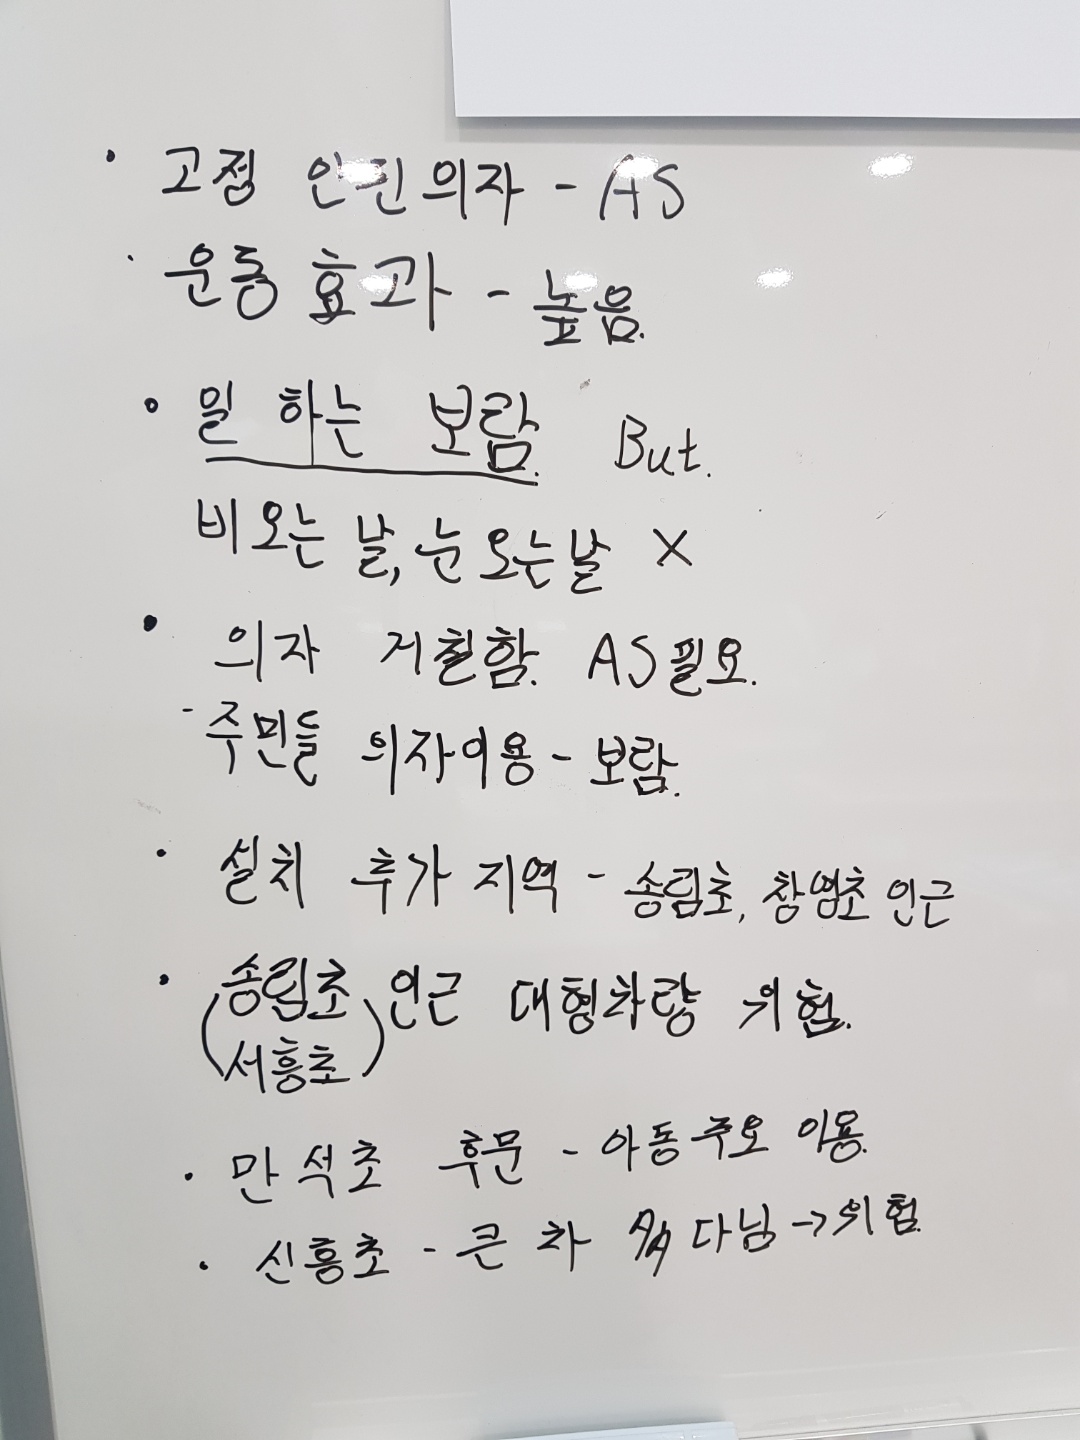 · 고정 안된 의자 - AS
· 운동 효과 - 높음.
· 일 하는 보람. But.
비오는 날, 눈 오는 날 X
· 의자 거칠함. AS필요.
- 주민들 의자이용 - 보람.
· 설치 추가 지역 - 송림초, 창영초 인근
· (송림초 서흥초) 인근 대형차량 위험.
· 만석초 후문 - 아동 주요 이용.
· 신흥초 - 큰 차 多 다님 → 위험.